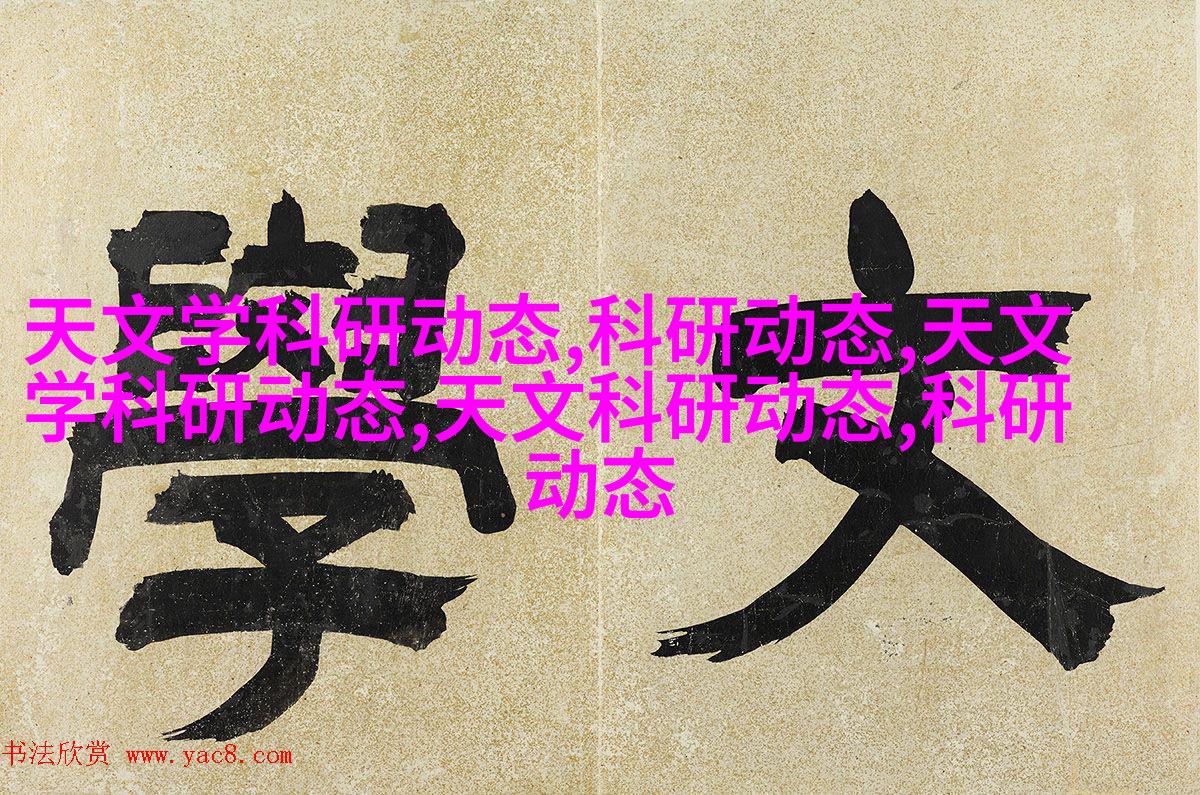 文學
天文学科研动态,科研动态,天文
学科研动态,天文科研动态,科研
动态
书法欣赏 www.yac8.com